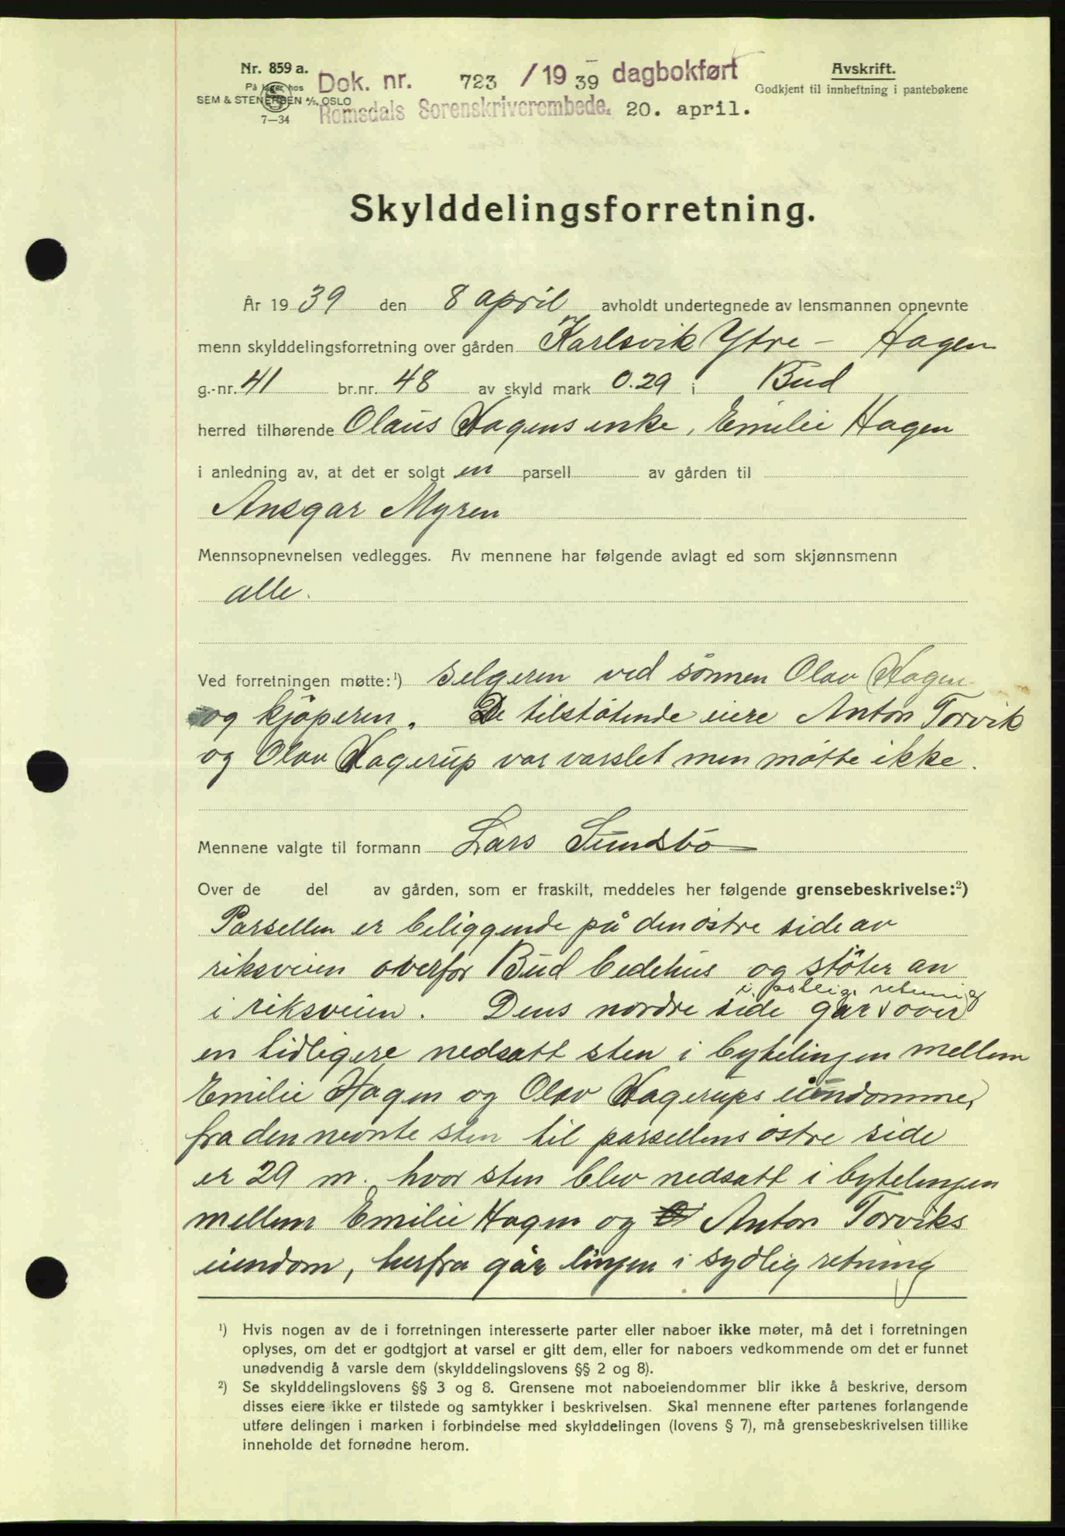 Nr. 859 a.
På lager hos
SEM & STENERSEN A/S, OSLO
7—34
Dok. nr. 723 /19 39 dagbokført
Romsdals Sorenskriverembede. 20. april.
Avskrift.
Godkjent til innheftning i pantebøkene
Skylddelingsforretning.
År 19 39 den 8 april avholdt undertegnede av lensmannen opnevnte
menn skylddelingsforretning over gården Karlsvik Ytre - Hagen
g.-nr. 41 br.nr. 48 av skyld mark 0.29 i Bud
herred tilhørende Olaus Hagens enke, Emilie Hagen
i anledning av, at det er solgt en parsell av gården til
Ansgar Myren
Mennsopnevnelsen vedlegges. Av mennene har følgende avlagt ed som skjønnsmenn
alle.
Ved forretningen møtte:¹) selgeren ved sønnen Olav Hagen
og kjøperen. De tilstøtende eiere Anton Torvik
og Olav Hagerup var varslet men møtte ikke.
Mennene valgte til formann Lars Sundsbø
Over de del av gården, som er fraskilt, meddeles her følgende grensebeskrivelse:²)
Parsellen er beliggende på den østre side av
riksveien overfor Bud bedehus og støter an
i østlig retning
i riksveien. Dens nordre side går over
en tidligere nedsatt sten i bytelinjen mellem
Emilie Hagen og Olav Hagerups eiendomme,
fra den nevnte sten til parsellens østre side
er 29 m. hvor sten blev nedsatt i bytelinjen
mellem Emilie Hagen og Anton Torviks
eiendom, herfra går linjen i sydlig retning
¹) Hvis nogen av de i forretningen interesserte parter eller naboer ikke møter, må det i forretningen
oplyses, om det er godtgjort at varsel er gitt dem, eller for naboers vedkommende om det er funnet
unødvendig å varsle dem (skylddelingslovens §§ 2 og 8).
²) Se skylddelingslovens §§ 3 og 8. Grensene mot naboeiendommer blir ikke å beskrive, dersom
disses eiere ikke er tilstede og samtykker i beskrivelsen. Skal mennene efter partenes forlangende
utføre delingen i marken i forbindelse med skylddelingen (lovens § 7), må grensebeskrivelsen tillike
inneholde det fornødne herom.